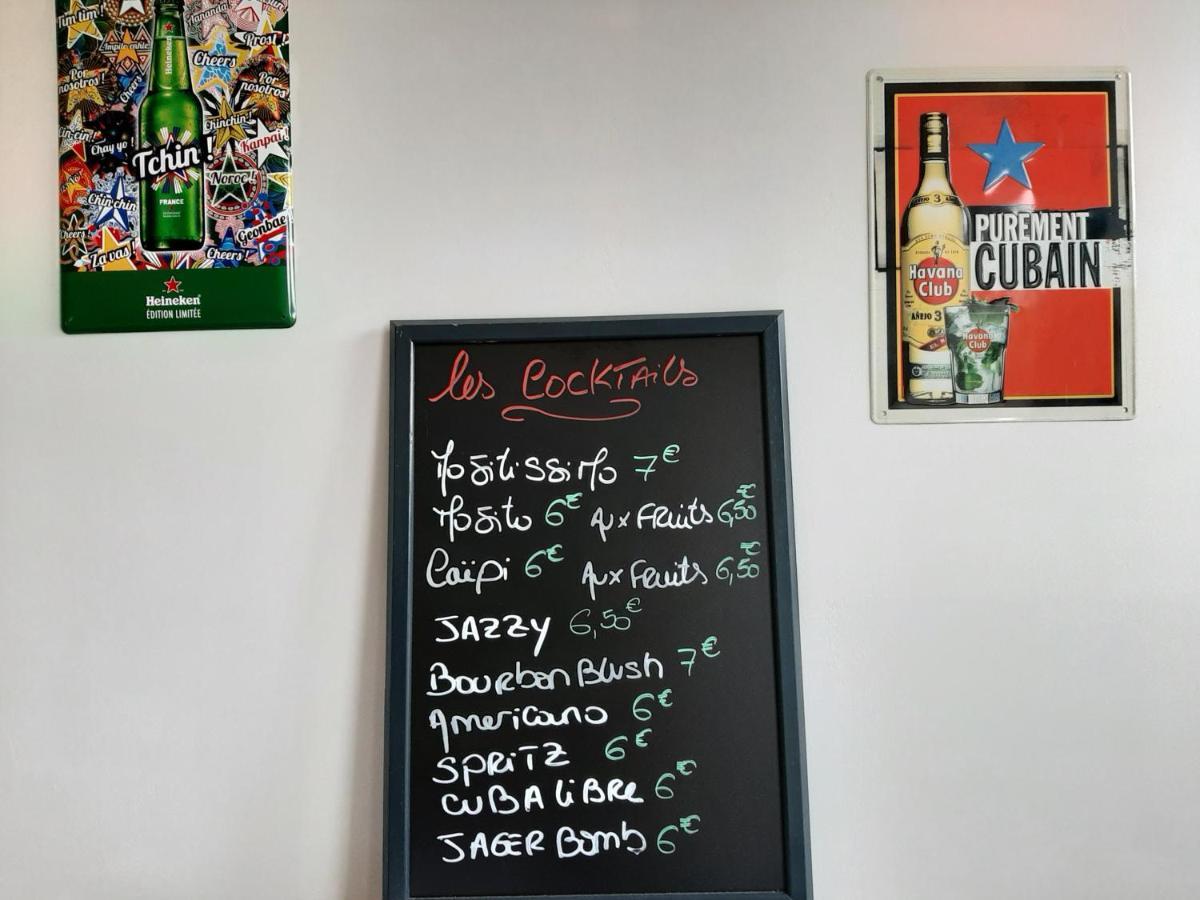 Tim tim!
Prost!
Ampile enkle
Cheers
Por nosotros!
Heineken
Cheers
Por nosotros!
Chinchin!
Chay yo!
Kanpai!
Tchin!
Noroc!
FRANCE
Chin chin
Cheers!
Geonbae
Za vas!
Cheers!
Heineken
ÉDITION LIMITÉE
AÑEJO 3
PUREMENT
CUBAIN
Havana
Club
AÑEJO 3
Havana
Club
les COCKTAils
Mojitissimo 7€
Mojito 6€ Aux Fruits 6,50€
Caïpi 6€ Aux Fruits 6,50€
JAZZY 6,50€
Bourbon Blush 7€
Americano 6€
SPRiTZ 6€
CUBA LiBRE 6€
JAGER Bomb 6€